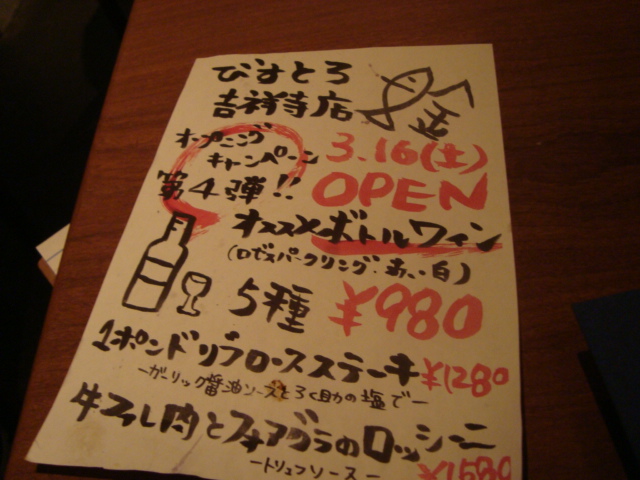 びすとろ
吉祥寺店
オープニング
キャンペーン
第4弾!!
3.16(土)
OPEN
オススメボトルワイン
(ロゼスパークリング・赤い白)
5種 ¥980
1ポンドリブロースステーキ ¥1280
ーガーリック醤油ソースとろく助の塩でー
牛ヒレ肉とフォアグラのロッシーニ
ートリュフソースー
¥1580